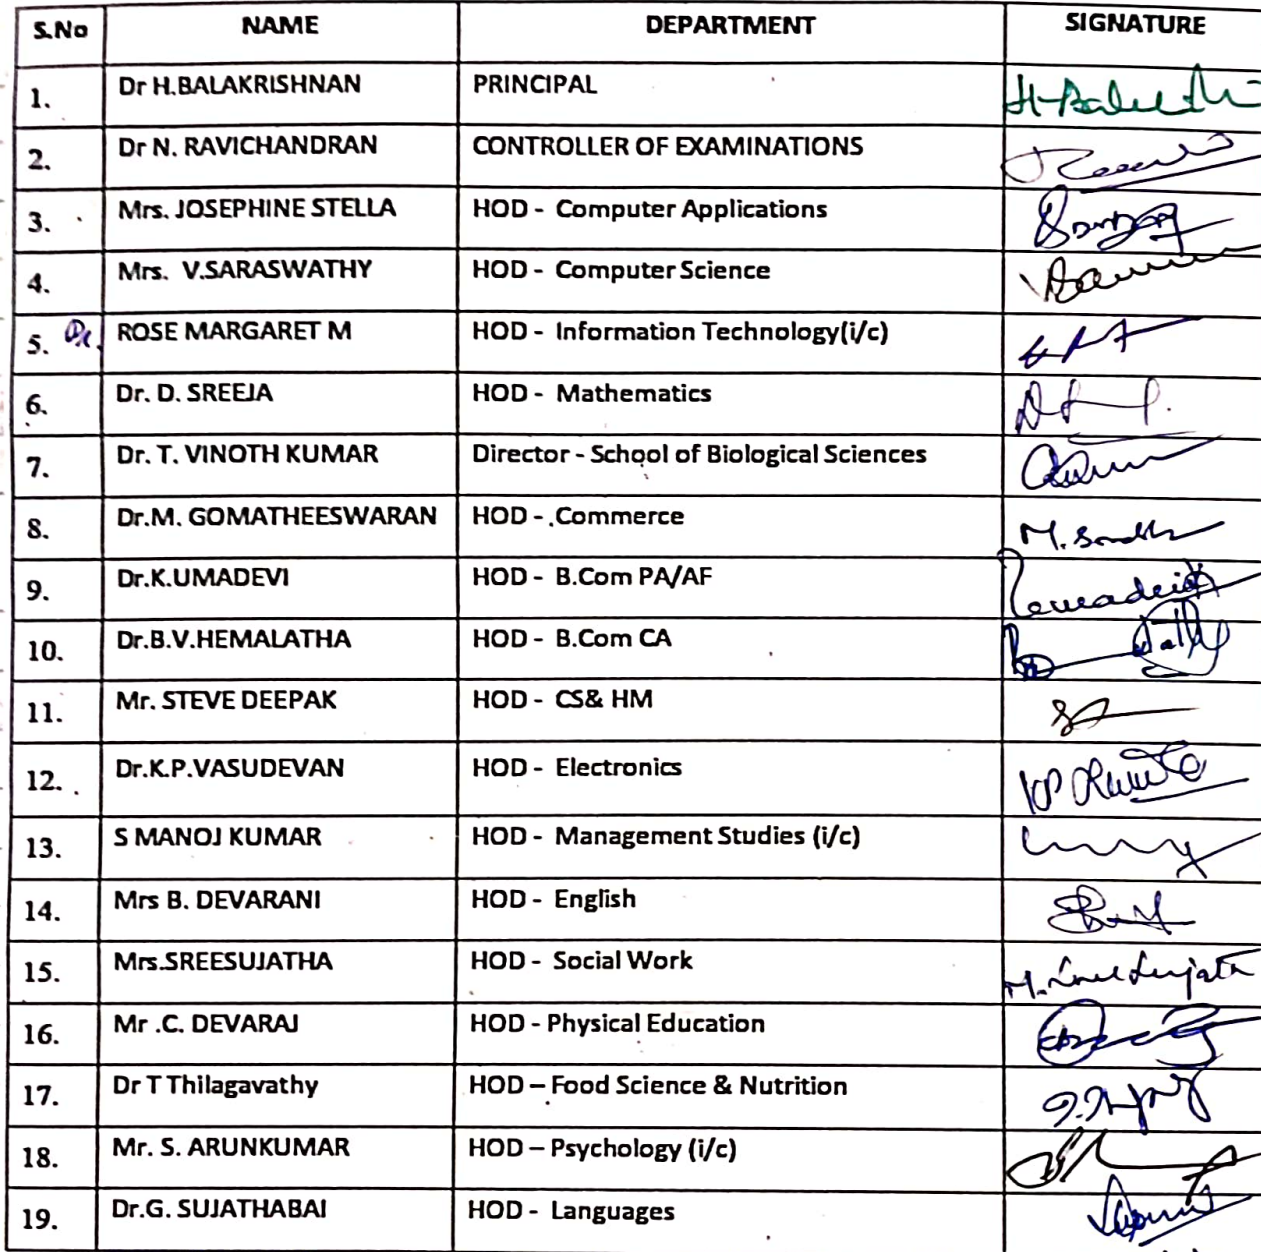 S.No NAME DEPARTMENT SIGNATURE
1. Dr H.BALAKRISHNAN PRINCIPAL
2. Dr N. RAVICHANDRAN CONTROLLER OF EXAMINATIONS
3. Mrs. JOSEPHINE STELLA HOD - Computer Applications
4. Mrs. V.SARASWATHY HOD - Computer Science
5. Dr. ROSE MARGARET M HOD - Information Technology(i/c)
6. Dr. D. SREEJA HOD - Mathematics
7. Dr. T. VINOTH KUMAR Director - School of Biological Sciences
8. Dr.M. GOMATHEESWARAN HOD - Commerce
9. Dr.K.UMADEVI HOD - B.Com PA/AF
10. Dr.B.V.HEMALATHA HOD - B.Com CA
11. Mr. STEVE DEEPAK HOD - CS& HM
12. Dr.K.P.VASUDEVAN HOD - Electronics
13. S MANOJ KUMAR HOD - Management Studies (i/c)
14. Mrs B. DEVARANI HOD - English
15. Mrs.SREESUJATHA HOD - Social Work
16. Mr .C. DEVARAJ HOD - Physical Education
17. Dr T Thilagavathy HOD – Food Science & Nutrition
18. Mr. S. ARUNKUMAR HOD – Psychology (i/c)
19. Dr.G. SUJATHABAI HOD - Languages